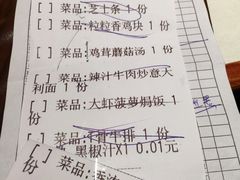 [ ] 菜品:芝士条 1 份
[ ] 菜品:粒粒香鸡块 1
份
[ ] 菜品:鸡茸蘑菇汤 1
份
[ ] 菜品:辣汁牛肉炒意大
利面 1 份
[ ] 菜品:大虾菠萝焗饭 1
份
[ ] 菜品:牛排 1 份
黑椒汁X1 0.01元
[ ] 菜品:
份